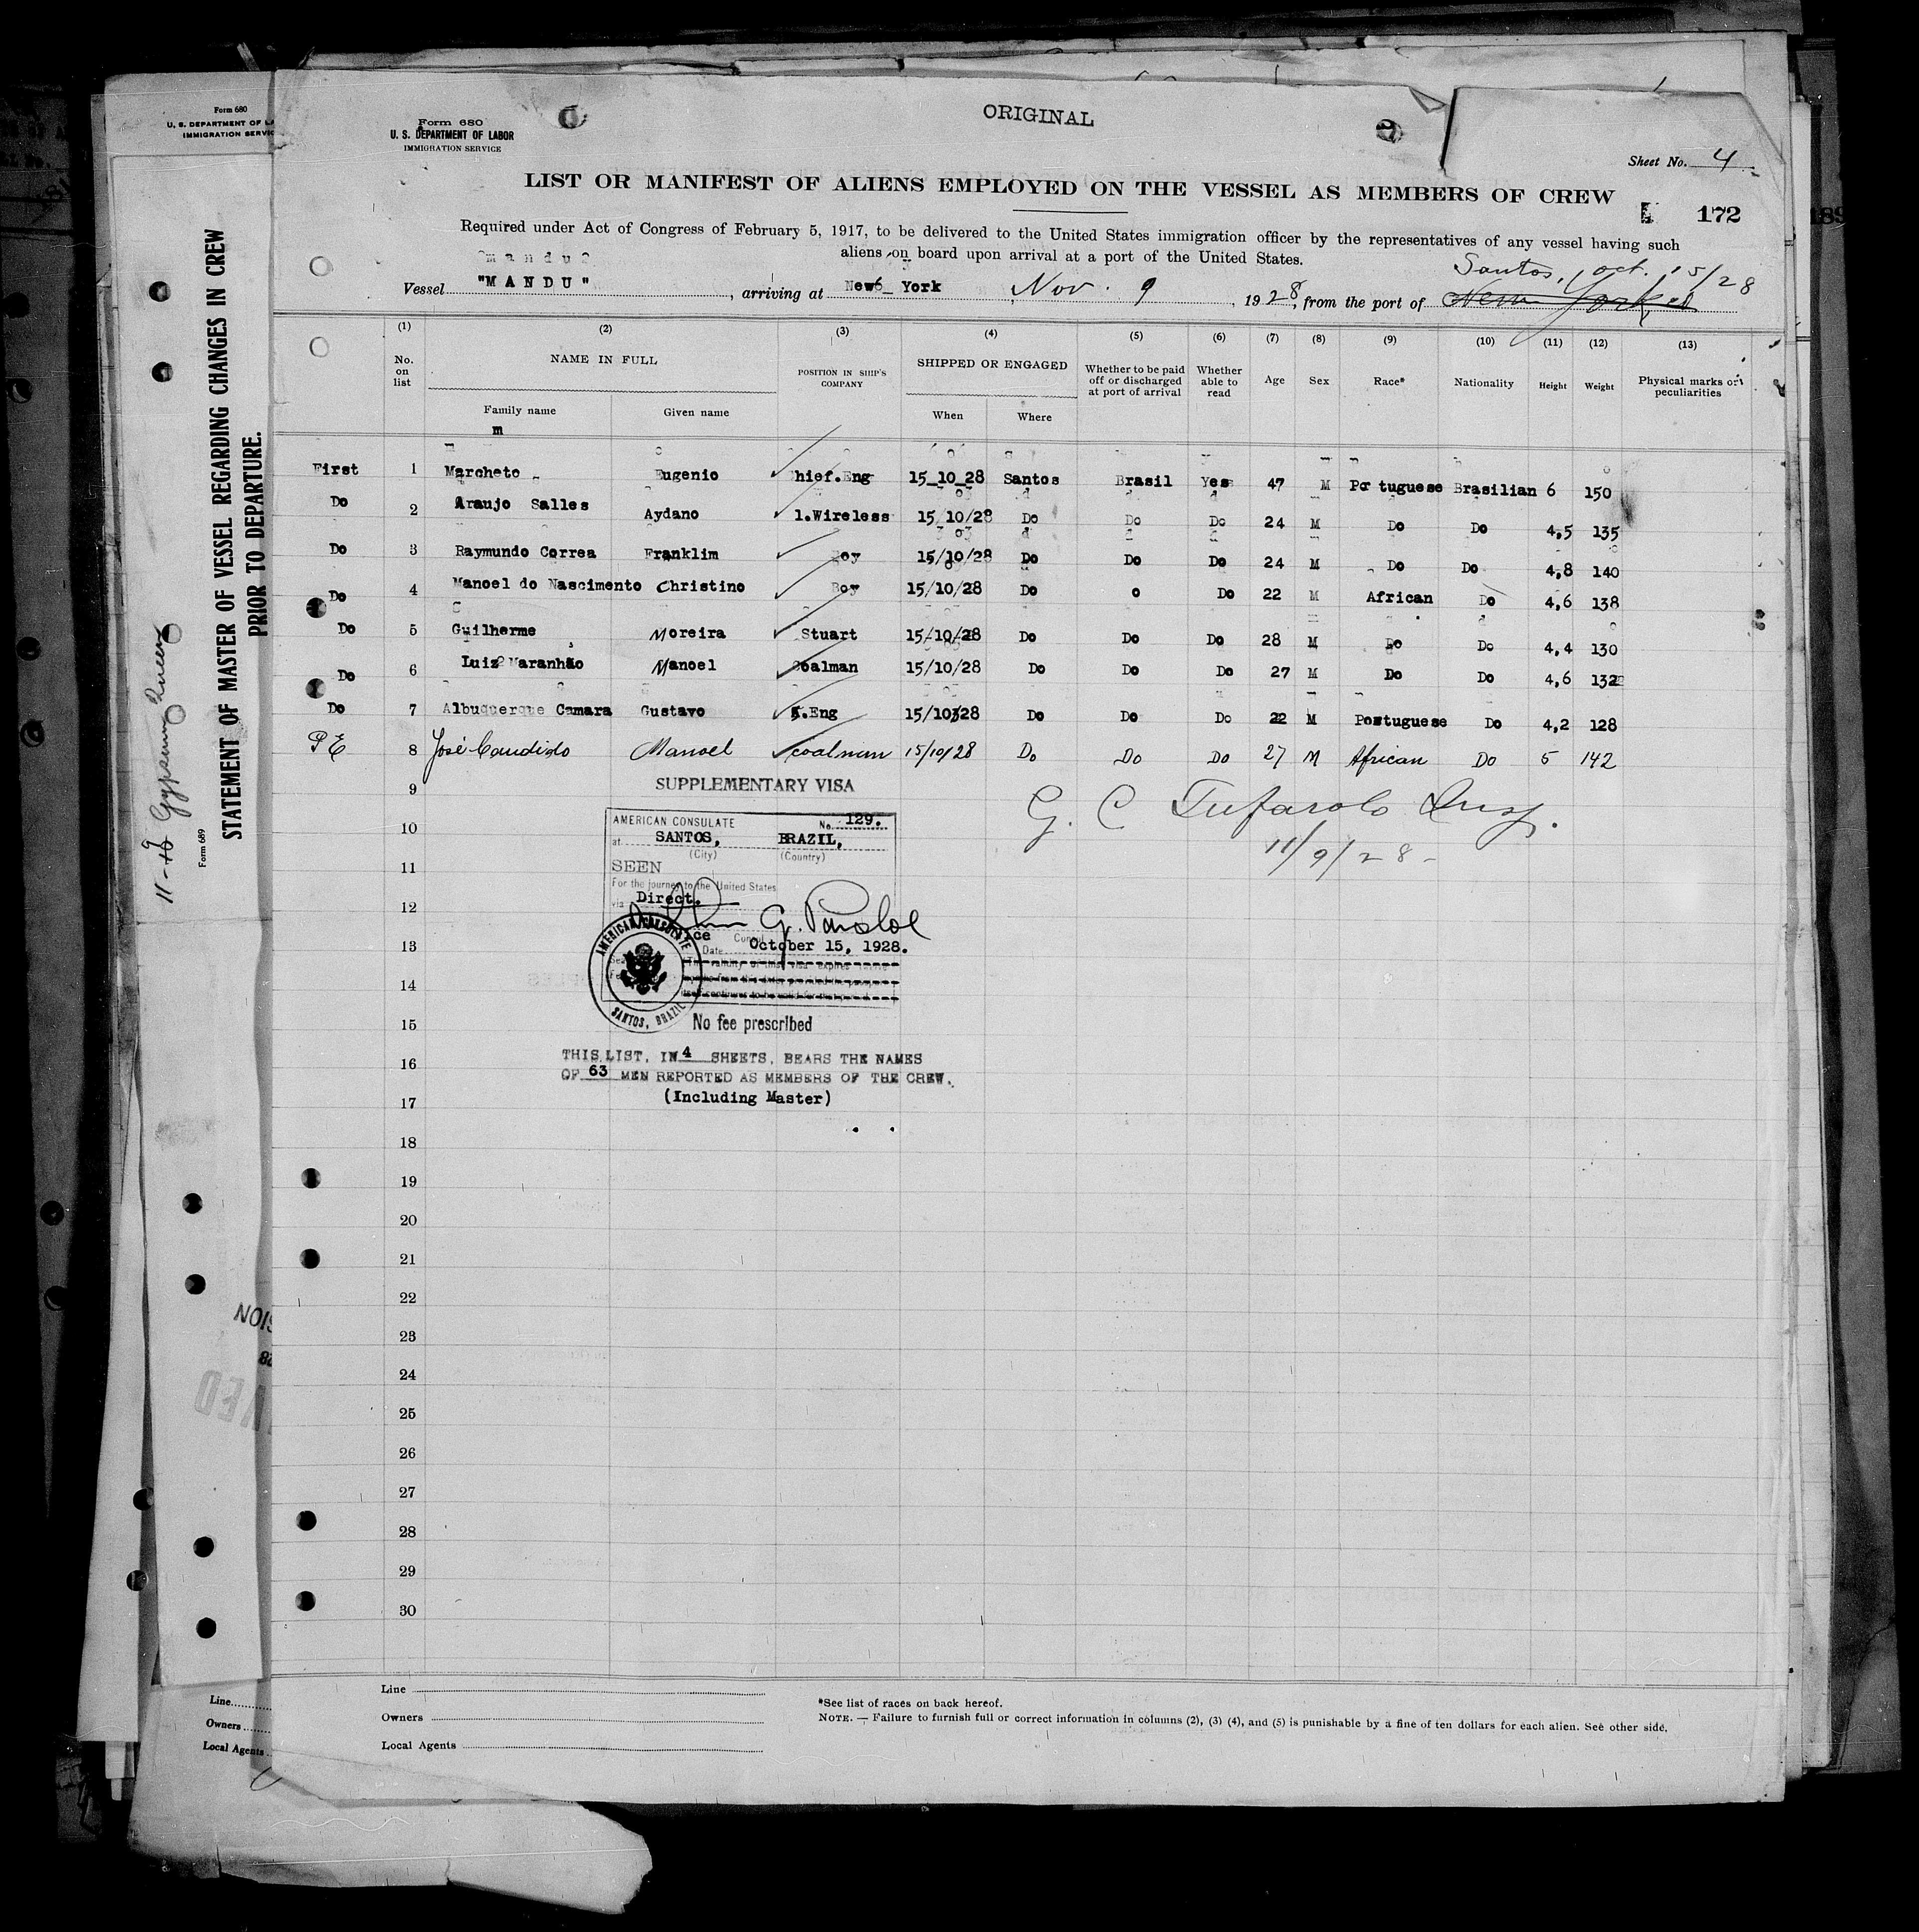 ORIGINAL
Form 680
U. S. DEPARTMENT OF LABOR
IMMIGRATION SERVICE
Sheet No. 4
LIST OR MANIFEST OF ALIENS EMPLOYED ON THE VESSEL AS MEMBERS OF CREW
172
Required under Act of Congress of February 5, 1917, to be delivered to the United States immigration officer by the representatives of any vessel having such
aliens on board upon arrival at a port of the United States.
Santos, oct. 15/28
Vessel "MANDU", arriving at New York Nov. 9, 1928, from the port of New York
(1) (2) (3) (4) (5) (6) (7) (8) (9) (10) (11) (12) (13)
No. on list NAME IN FULL Family name Given name POSITION IN SHIP'S COMPANY SHIPPED OR ENGAGED When Where Whether to be paid off or discharged at port of arrival Whether able to read Age Sex Race* Nationality Height Weight Physical marks or peculiarities
First 1 Marcheto Eugenio hief.Eng 15_10_28 Santos Brasil Yes 47 M Portuguese Brasilian 6 150
Do 2 Araujo Salles Aydano 1.Wireless 15/10/28 Do Do Do 24 M Do Do 4,5 135
Do 3 Raymundo Correa Franklim Boy 15/10/28 Do Do Do 24 M Do Do 4,8 140
Do 4 Manoel do Nascimento Christino Boy 15/10/28 Do o Do 22 M African Do 4,6 138
Do 5 Guilherme Moreira Stuart 15/10/28 Do Do Do 28 M Do Do 4,4 130
Do 6 Luiz Maranhão Manoel Coalman 15/10/28 Do Do Do 27 M Do Do 4,6 132
Do 7 Albuquerque Camara Gustavo .Eng 15/10328 Do Do Do 22 M Portuguese Do 4,2 128
PE 8 José Candido Manoel coalman 15/10/28 Do Do Do 27 M African Do 5 142
9
10
11
12
13
14
15
16
17
18
19
20
21
22
23
24
25
26
27
28
29
30
G. C Tufarolo Insp.
11/9/28-
SUPPLEMENTARY VISA
AMERICAN CONSULATE No. 129.
at SANTOS, BRAZIL,
(City) (Country)
SEEN
For the journey to the United States
via Direct.
ce Consul
Date October 15, 1928.
AMERICAN CONSULATE
SANTOS, BRAZIL
No fee prescribed
THIS LIST, IN 4 SHEETS, BEARS THE NAMES
OF 63 MEN REPORTED AS MEMBERS OF THE CREW.
(Including Master)
Line
Owners
Local Agents
*See list of races on back hereof.
NOTE. — Failure to furnish full or correct information in columns (2), (3) (4), and (5) is punishable by a fine of ten dollars for each alien. See other side.
Form 680
U. S. DEPARTMENT OF LA
IMMIGRATION SERVIC
STATEMENT OF MASTER OF VESSEL REGARDING CHANGES IN CREW
PRIOR TO DEPARTURE.
Form 689
Gypsum Queen
Line
Owners
Local Agents